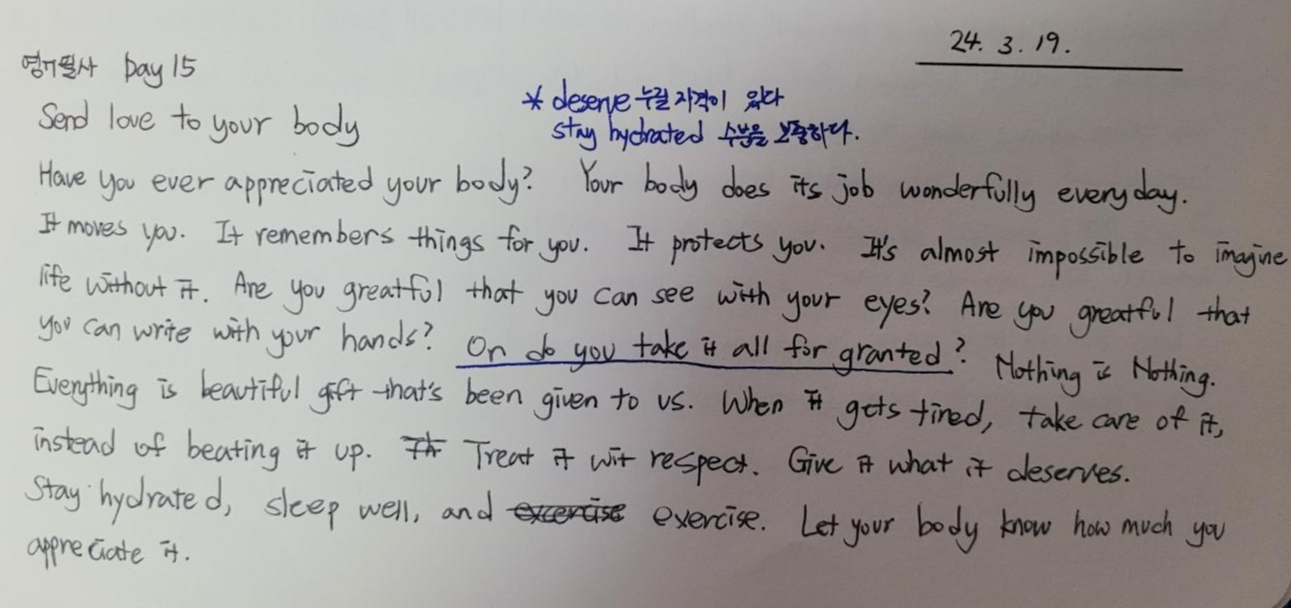 24. 3. 19.
영어필사 Day 15
* deserve 누릴 자격이 있다
Send love to your body
stay hydrated 수분을 보충하다.
Have you ever appreciated your body? Your body does its job wonderfully everyday.
It moves you. It remembers things for you. It protects you. It's almost impossible to imagine
life without it. Are you greatful that you can see with your eyes? Are you greatful that
you can write with your hands? Or do you take it all for granted? Nothing is Nothing.
Everything is beautiful gift that's been given to us. When it gets tired, take care of it,
instead of beating it up. Treat it wit respect. Give it what it deserves.
Stay hydrated, sleep well, and excercise exercise. Let your body know how much you
appreciate it.